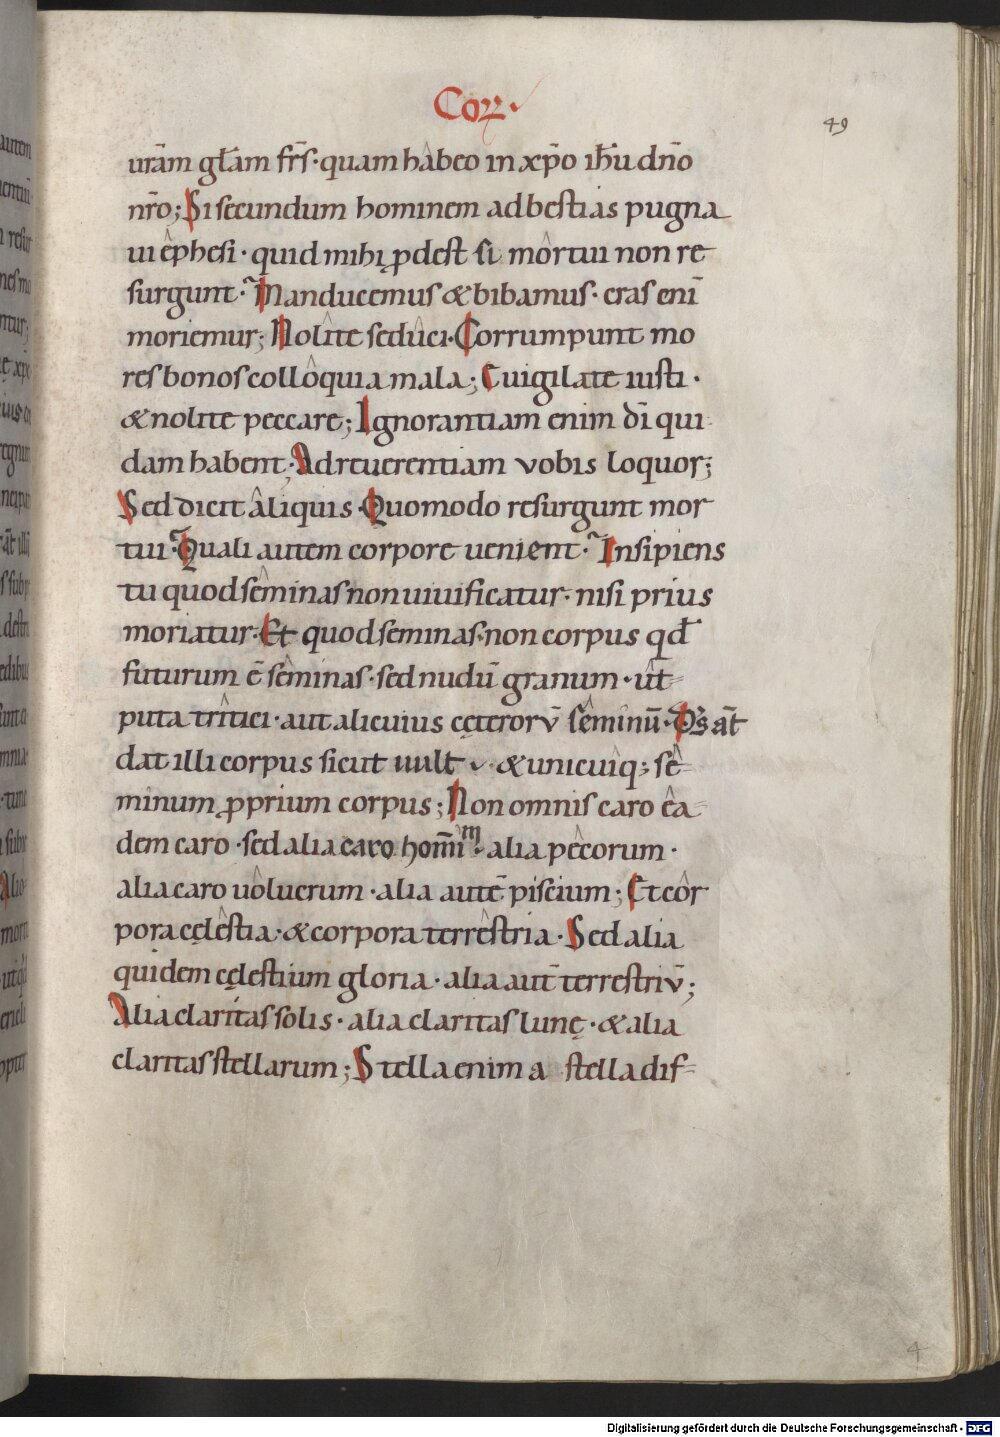 Corꝝ.
49
urām głam frs̄·quam hâbeo in xp̄o ih̄u dn̄o
nr̄o; Si secundum hominem ad bestias pugna
ui êphesi· quid mihi ꝓdest si môrtui non re
surgunt· Manducemus & bibamus· cras enī
moriemur; Nolîte sedûci· Corrumpunt mo
res bonos collôquia mala; Euigilate iusti·
& nolite peccare; Ignorantiam enim dī qui
dam habent· Ad reuerentiam vobis loquor;
Sed dicit âliquis· Quomodo resurgunt mor
tui· Quali autem corpore uenient· Insipiens
tu quod sêminas non uiuificatur· nisi prius
moriatur· Et quod seminas·non corpus qđ
futurum ē sêminas· sed nudū granum· ût-
puta trîtici· aut alicuius cęterorū sêminū· Ds aūt
dat illi corpus sicut uult· & unicuîq; sê-
minum ꝓprium corpus; Non omnis caro êa-
dem caro· sed alia caro homīm· alia pêcorum·
alia caro uôlucrum· alia autē piscium; Et côr
pora cęlêstia· & corpora terrêstria· Sed alia
quidem cęlestium gloria· alia aut̄ terrestriū;
Alia claritas solis· alia claritas lunę· & alia
claritas stellarum; Stella enim a stella dif-
4
Digitalisierung gefördert durch die Deutsche Forschungsgemeinschaft - DFG